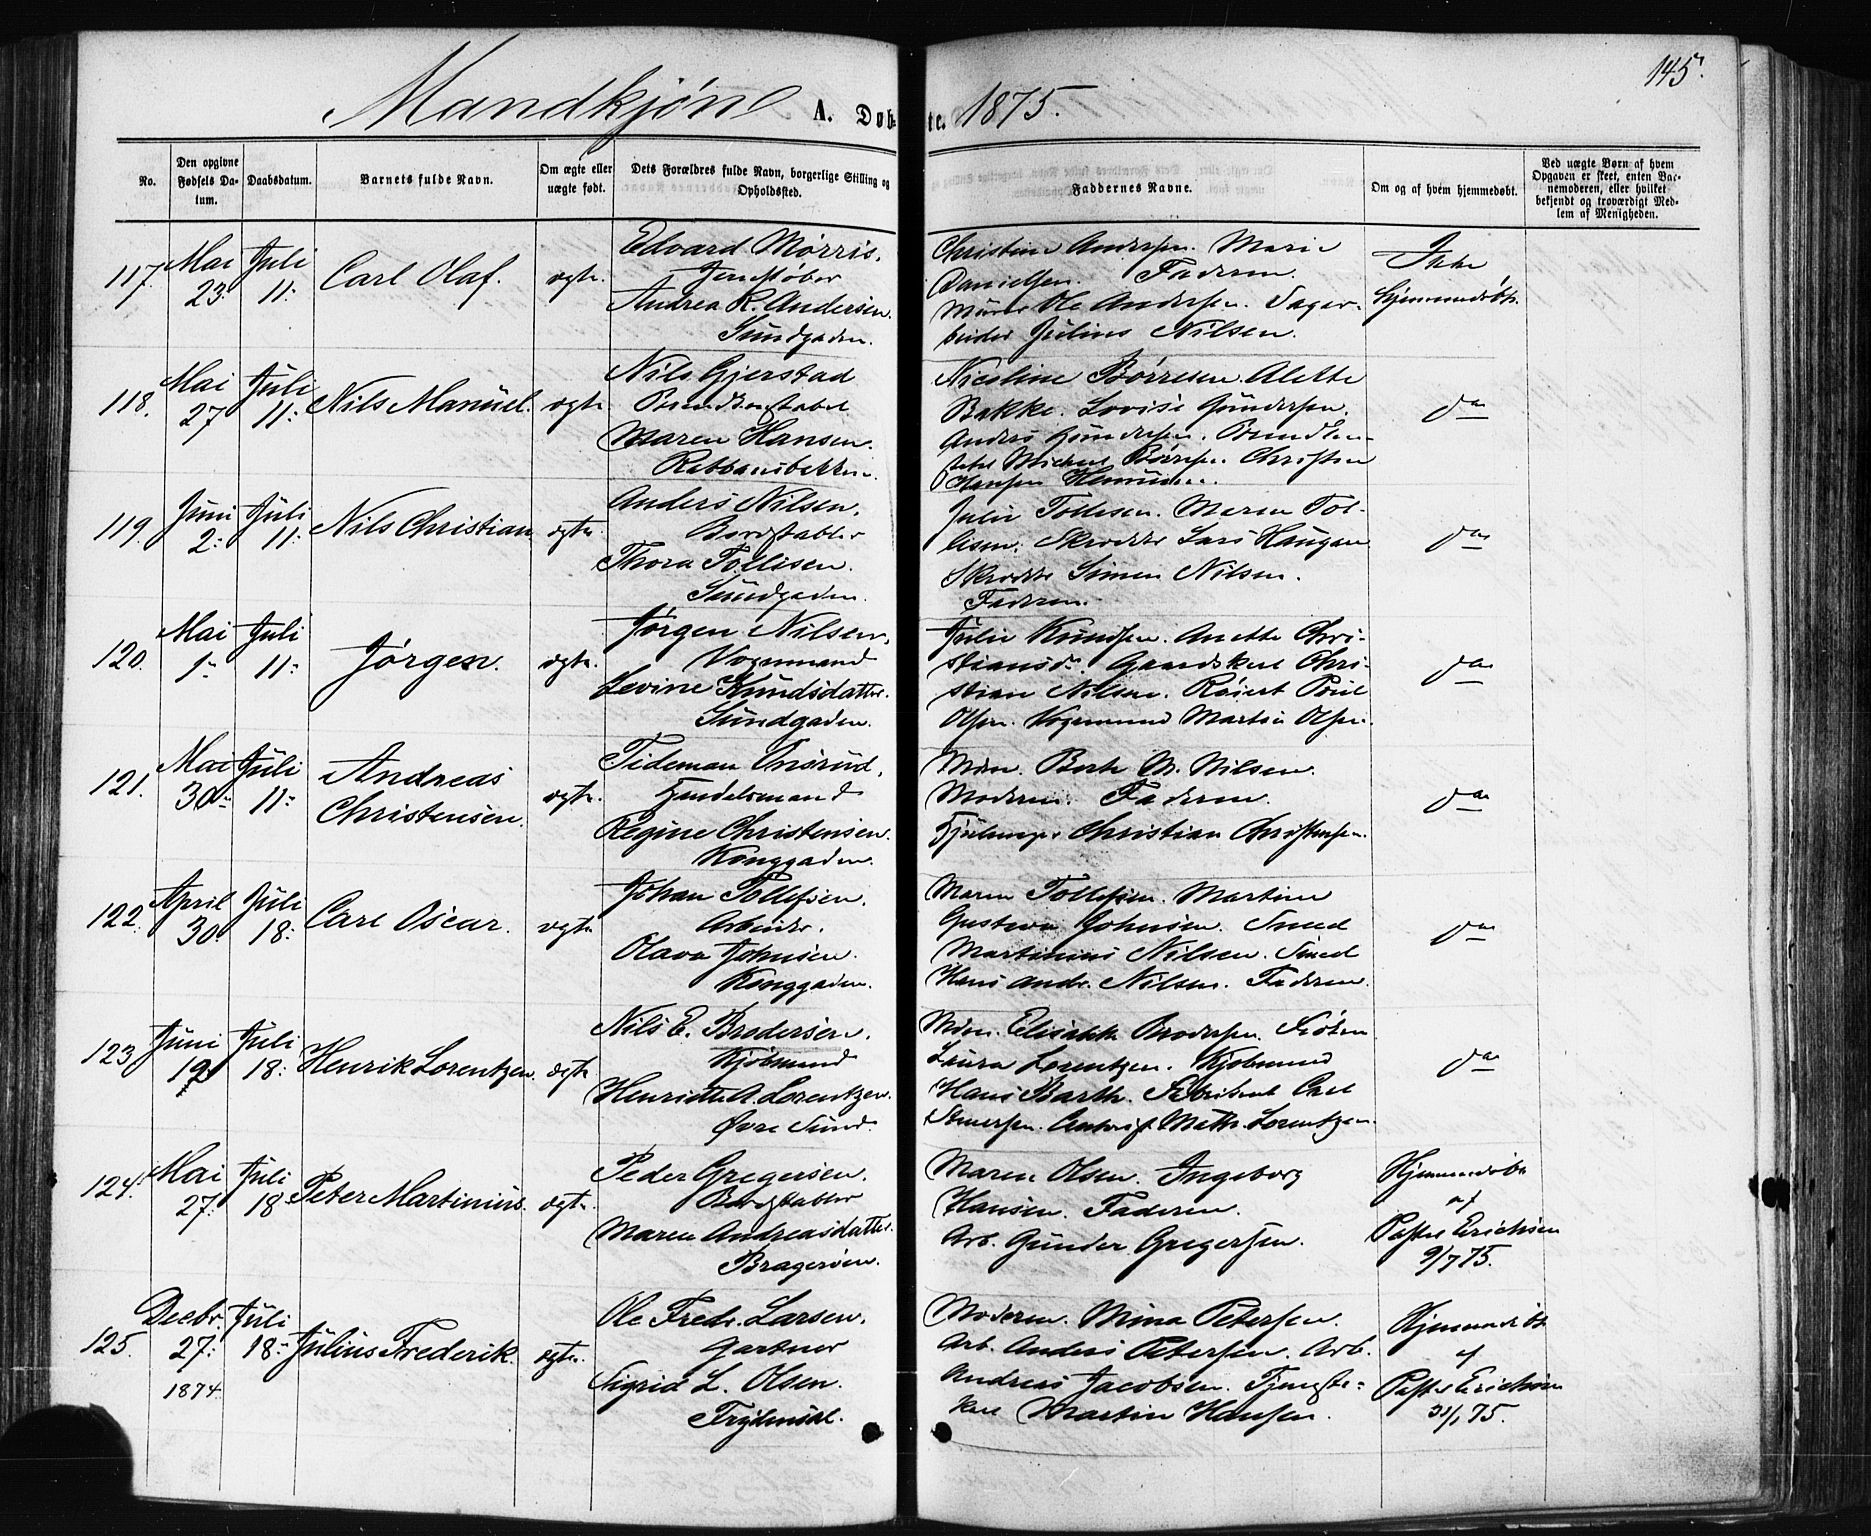 145.
Mandkjøn A. Døb-
te. 1875.
No.
Den opgivne
Fødsels Da-
tum.
Daabsdatum.
Barnets fulde Navn.
Om ægte eller
uægte født.
Dets Forældres fulde Navn, borgerlige Stilling og
Opholdssted.
Faddernes Navne.
Om og af hvem hjemmedøbt.
Ved uægte Børn af hvem
Opgaven er skeet, enten Bar-
nemoderen, eller hvilket
bekjendt og troværdigt Med-
lem af Menigheden.
117.
Mai
23.
Juli
11.
Carl Olaf.
ægte.
Edvard Mørris.
Jernstøber
Andrea K. Andersen.
Sundgaden.
Christine Andersen. Marie
Danielsen. Faderen.
Murer Ole Andersen. Sagar-
beider Julius Nilsen.
Ikke
hjemmedøbt.
118.
Mai
27
Juli
11.
Nils Manuel.
ægte
Nils Gjerstad
Maren Hansen.
Nicoline Børresen. Alette
Bakke. Lovise Gundersen.
Anders Gundersen.
Børresen. Christian
Hansen
do
119.
Juni
2.
Juli
11.
Nils Christian
ægte.
Anders Nilsen.
Bordstabler
Thora Tollisen.
Sundgaden.
Julie Tollisen. Maren Tol-
lisen. Skrædder Lars Haugan
Skrædder Simen Nilsen.
Faderen.
do
120.
Mai
1.
Juli
11.
Jørgen.
ægte.
Jørgen Nilsen.
Vognmand
Levine Knudsdatter.
Sundgaden.
Julie Knudsen. Anette Chri-
stiansd. Gaardskarl Chri-
stian Nilsen.
Olsen. Vognmand Martin Olsen.
do
121.
Mai
30.
Juli
11.
Andreas
Christensen.
ægte.
Tideman
Handelsmand
Regine Christensen.
Konggaden.
Mdm. Berte M. Nilsen.
Moderen. Faderen.
Christian Christensen.
do
122.
April
30.
Juli
18.
Carl Oscar.
ægte
Johan Tollefsen.
Arbeider.
Olava Johnsen.
Konggaden.
Maren Tollefsen. Martine
Gustava Johnsen. Smed
Martinius Nilsen. Smed
Hans Andr. Nilsen. Faderen.
do
123
Juni
19
Juli
18.
Henrik Lorentzen.
ægte
Nils E. Brodersen.
Kjøbmand
Henriette A. Lorentzen.
Øvre Sund.
Mdm. Elisabeth Brodersen. Frøken
Laura Lorentzen. Kjøbmand
Hans Barth. Fabrikant Carl
Math. Lorentzen.
do
124.
Mai
27.
Juli
18
Peter Martinius.
ægte.
Peder Gregersen.
Bordstabler
Maren Andreasdatter.
Bragerøen.
Maren Olsen. Ingeborg
Hansen. Faderen.
Arb. Gunder Gregersen.
Hjemmedøbt
af
Pastor Erichsen
9/7 75.
125.
Decbr.
27.
1874.
Juli
18.
Julius Frederik.
ægte.
Ole Fredr. Larsen.
Gartner
Sigrid L. Olsen.
Frydendal.
Moderen. Mina Petersen.
Arb. Anders Petersen. Arb.
Andreas Jacobsen. Tjeneste-
karl Martin Hansen.
Hjemmedøbt
af
Pastor Erichsen
31/1 75.